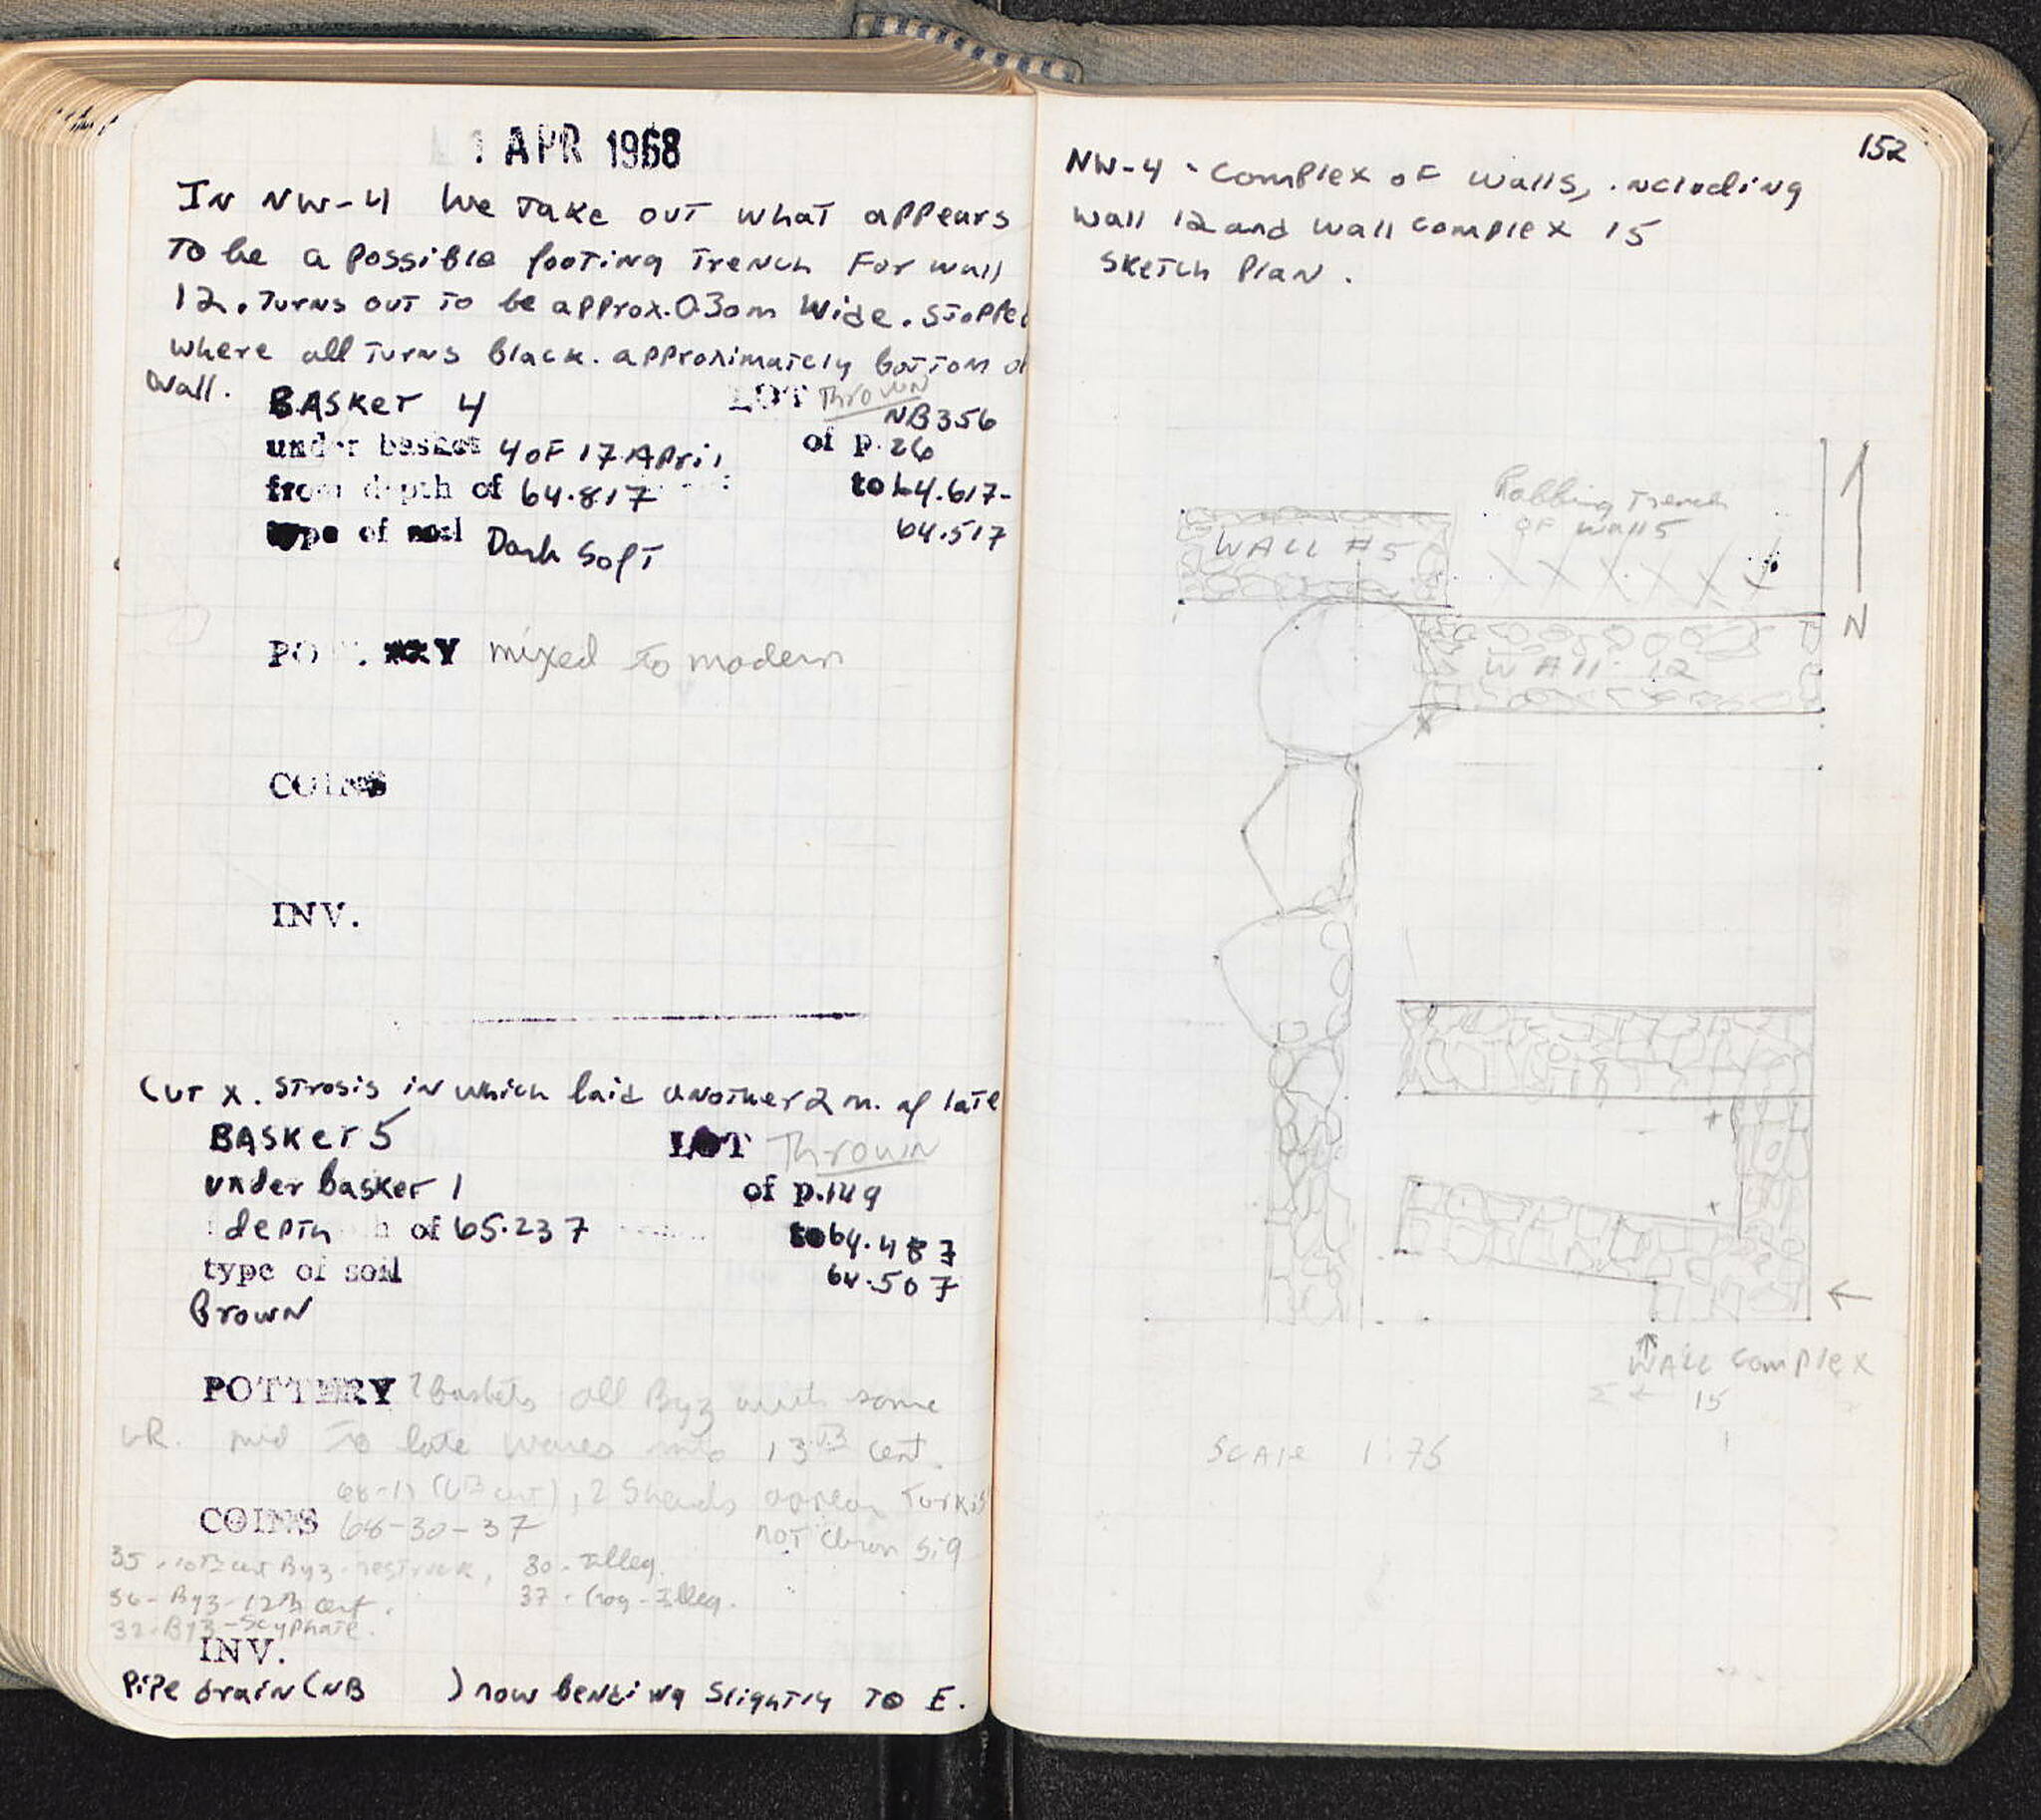 1 APR 1968
In NW-4 we take out what appears
to be a possible footing trench for wall
12. Turns out to be approx. 0.30m wide. Stopped
where all turns black. approximately bottom of
wall.
BASKET 4 LOT Thrown
NB356
under basket 4 of 17 April of p. 26
from depth of 64.817 to 64.617-
64.517
type of soil Dark Soft
POTTERY mixed to modern
COINS
INV.
Cut x. strosis in which laid another 2 m. of late
BASKET 5 LOT Thrown
under basket 1 of p. 149
depth of 65.237 to 64.487
64.507
type of soil
Brown
POTTERY 2 baskets all Byz with some
LR. mid to late wares into 13th cent.
2 Sherds appear Turkish
COINS 68-30-37 not chron sig
35 - 10th cent Byz. restruck, 30 - Illeg.
36 - Byz - 12th cent. 37 - frag - Illeg.
32 - Byz - Scyphate.
INV.
Pipe drain (NB ) now bending slightly to E.
152
NW-4 - Complex of walls, including
wall 12 and wall complex 15
Sketch Plan.
Robbing Trench
of wall 5
WALL #5
N
WALL 12
WALL Complex
15
SCALE 1:75